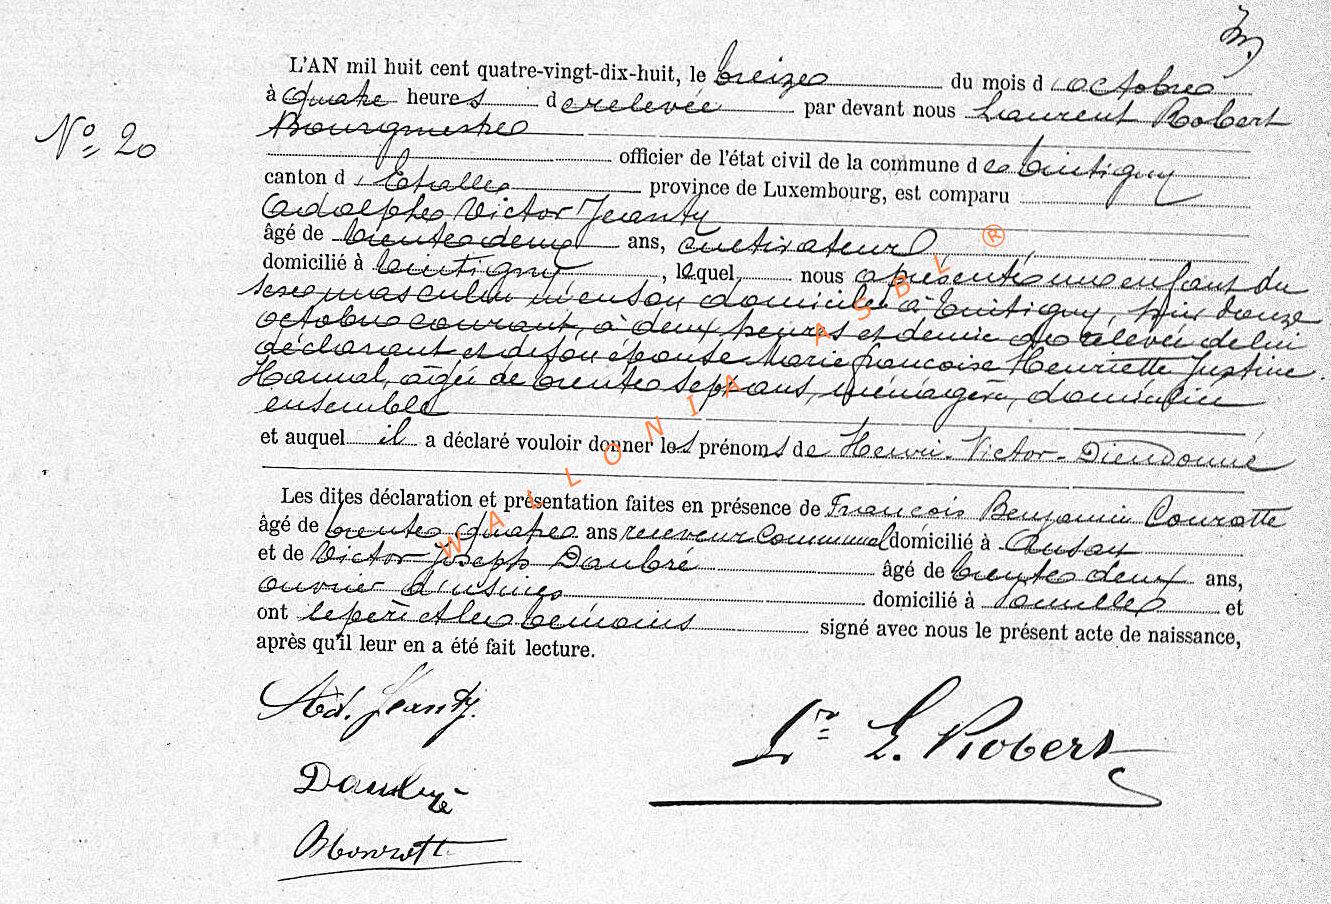 L'AN mil huit cent quatre-vingt-dix-huit, le treize du mois d'octobre
à quatre heures de relevée par devant nous Laurent Robert
Bourgmestre
Nº 20
officier de l'état civil de la commune de Tintigny
canton d'Etalle province de Luxembourg, est comparu
Adolphe Victor Jeanty
âgé de trente deux ans, cultivateur
domicilié à Tintigny, lequel nous a présenté un enfant du
sexe masculin né en son domicile à Tintigny, hier douze
octobre courant, à deux heures et demie de relevée de lui
déclarant et de son épouse Marie françoise Henriette Justine
Hannal, âgée de trente sept ans, ménagère, domiciliée
ensemble
et auquel il a déclaré vouloir donner les prénoms de Henri-Victor-Dieudonné
Les dites déclaration et présentation faites en présence de François Benjamin Couratte
âgé de trente quatre ans receveur Communal domicilié à Ansart
et de Victor Joseph Daubré âgé de trente deux ans,
ouvrier d'usines domicilié à et
ont le père et les témoins signé avec nous le présent acte de naissance,
après qu'il leur en a été fait lecture.
Ad. Jeanty.
L. Robert
Daubré
WALLONIA ASBL ®